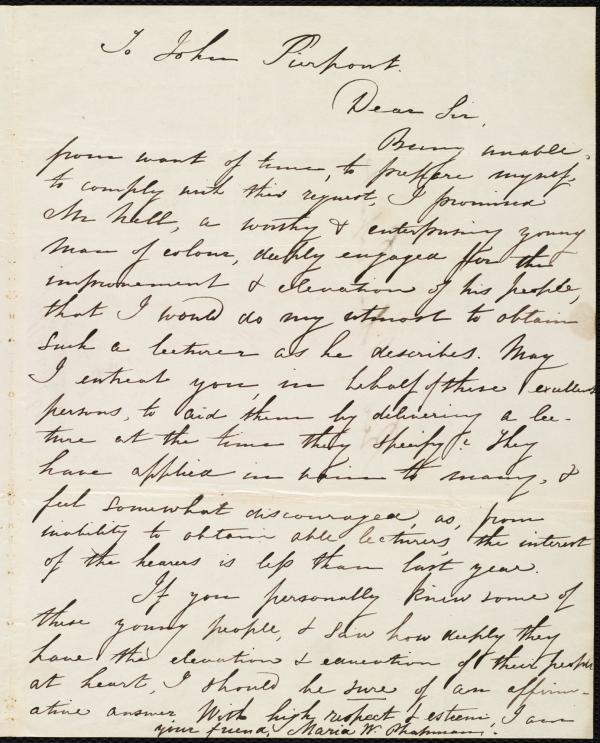 To John Pierpont.
Dear Sir,
Being unable,
from want of time, to prepare myself
to comply with this request, I promised
Mr Hall, a worthy & enterprising young
man of colour, deeply engaged for the
improvement & elevation of his people,
that I would do my utmost to obtain
such a lecturer as he describes. May
I entreat you, in behalf of these excellent
persons, to aid them by delivering a lec-
ture at the time they specify? They
have applied in vain to many, &
feel somewhat discouraged, as, from
inability to obtain able lecturers, the interest
of the hearers is less than last year.
If you personally knew some of
these young people, & saw how deeply they
have the elevation & education of their people
at heart, I should be sure of an affirm-
ative answer. With high respect & esteem, I am
your friend, Maria W. Chapman.